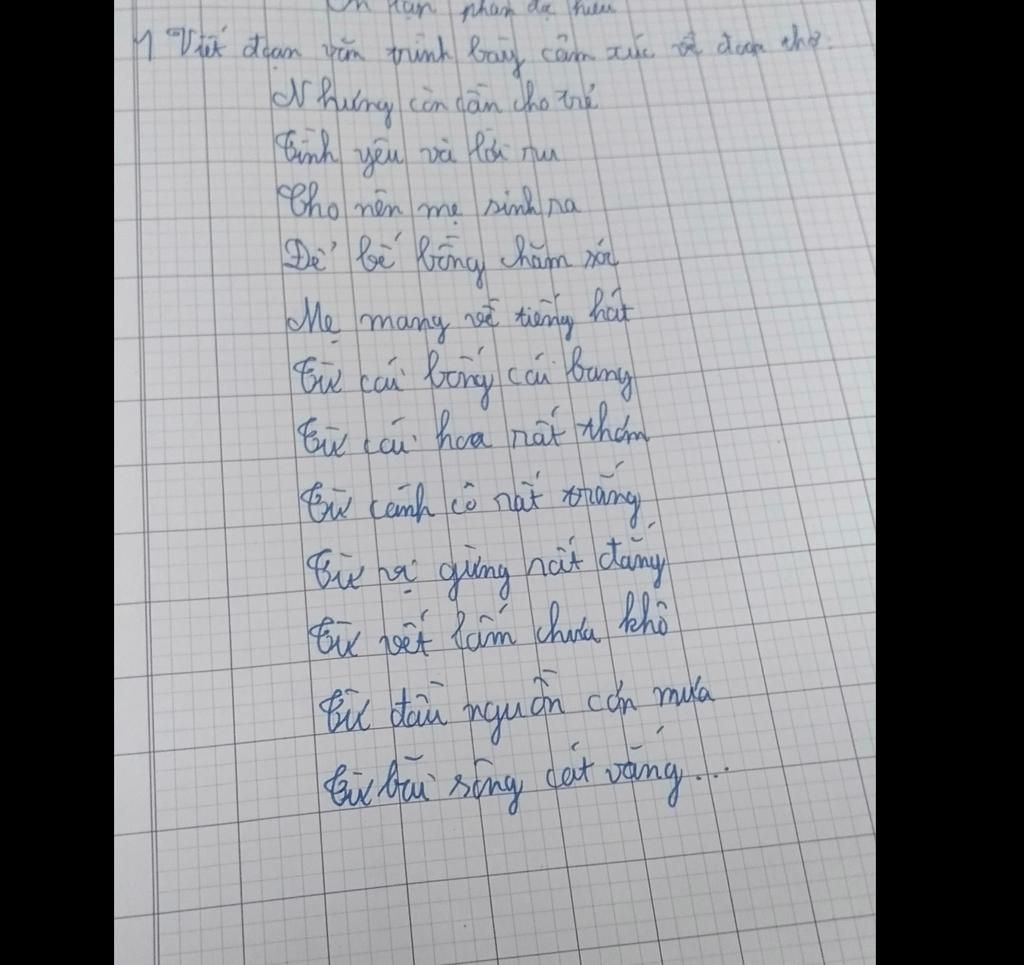 Ôn tập phần đọc hiểu
1 Viết đoạn văn trình bày cảm xúc về đoạn thơ:
Nhưng còn cần cho trẻ
Tình yêu và lời ru
Cho nên mẹ sinh ra
Để bế bồng chăm sóc
Mẹ mang về tiếng hát
Từ cái bống cái bang
Từ cái hoa rất thơm
Từ cánh cò rất trắng
Từ vị gừng rất đắng
Từ vết lấm chưa khô
Từ đầu nguồn cơn mưa
Từ bãi sông cát vắng...